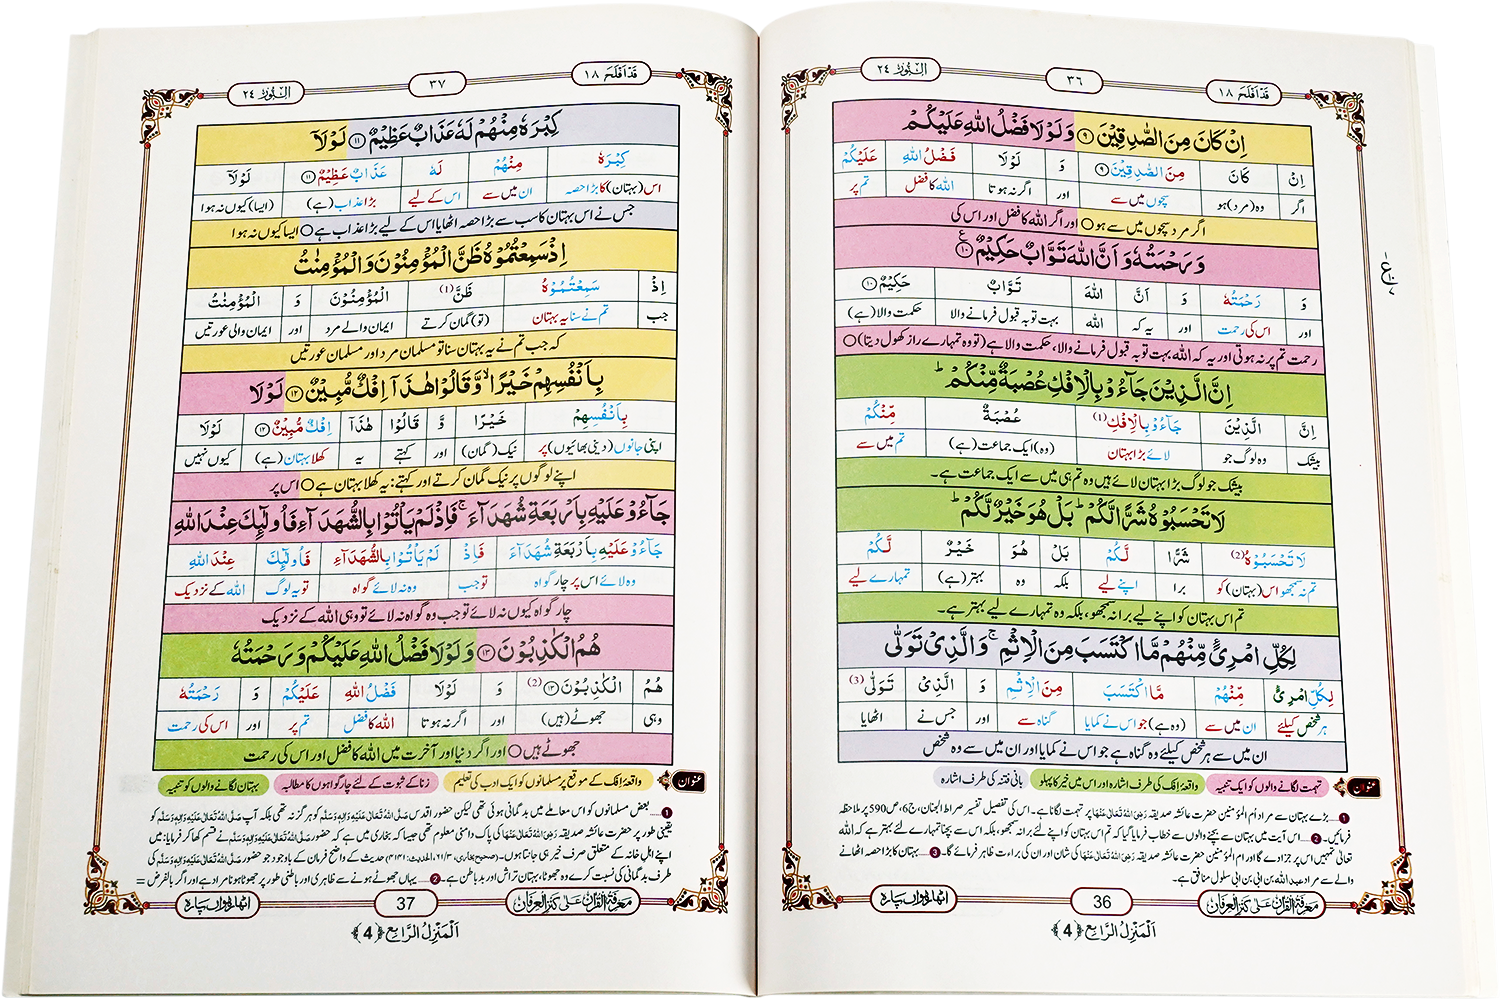 قَدْ اَفْلَحَ ١٨
٣٦
اَلنُّوْر ٢٤
اِنْ كَانَ مِنَ الصّٰدِقِيْنَ ﴿٩﴾ وَ لَوْ لَا فَضْلُ اللّٰهِ عَلَيْكُمْ
اِنْ كَانَ مِنَ الصّٰدِقِيْنَ ﴿٩﴾ وَ لَوْلَا فَضْلُ اللّٰهِ عَلَيْكُمْ
اگر وہ (مرد) ہو سچوں میں سے اور اگر نہ ہوتا اللہ کا فضل تم پر
اگر مرد سچوں میں سے ہو ○ اور اگر اللہ کا فضل اور اس کی
وَ رَحْمَتُهٗ وَ اَنَّ اللّٰهَ تَوَّابٌ حَكِيْمٌ ﴿١٠﴾
وَ رَحْمَتُهٗ وَ اَنَّ اللّٰهَ تَوَّابٌ حَكِيْمٌ ﴿١٠﴾
اور اس کی رحمت اور یہ کہ اللہ بہت توبہ قبول فرمانے والا حکمت والا (ہے)
رحمت تم پر نہ ہوتی اور یہ کہ اللہ بہت توبہ قبول فرمانے والا، حکمت والا ہے (تو وہ تمہارے راز کھول دیتا) ○
اِنَّ الَّذِيْنَ جَآءُوْ بِالْاِفْكِ عُصْبَةٌ مِّنْكُمْ ؕ
اِنَّ الَّذِيْنَ جَآءُوْ بِالْاِفْكِ (1) عُصْبَةٌ مِّنْكُمْ
بیشک وہ لوگ جو لائے بڑا بہتان (وہ) ایک جماعت (ہے) تم میں سے
بیشک جو لوگ بڑا بہتان لائے ہیں وہ تم ہی میں سے ایک جماعت ہے۔
لَا تَحْسَبُوْهُ شَرًّا لَّكُمْ ؕ بَلْ هُوَ خَيْرٌ لَّكُمْ ؕ
لَا تَحْسَبُوْهُ (2) شَرًّا لَّكُمْ بَلْ هُوَ خَيْرٌ لَّكُمْ
تم نہ سمجھو اس (بہتان) کو برا اپنے لیے بلکہ وہ بہتر (ہے) تمہارے لیے
تم اس بہتان کو اپنے لیے برا نہ سمجھو، بلکہ وہ تمہارے لیے بہتر ہے۔
لِكُلِّ امْرِئٍ مِّنْهُمْ مَّا اكْتَسَبَ مِنَ الْاِثْمِ ۚ وَ الَّذِيْ تَوَلّٰى
لِكُلِّ امْرِئٍ مِّنْهُمْ مَّا اكْتَسَبَ مِنَ الْاِثْمِ وَ الَّذِيْ تَوَلّٰى (3)
ہر شخص کیلئے ان میں سے (وہ ہے) جو اس نے کمایا گناہ سے اور جس نے اٹھایا
ان میں سے ہر شخص کیلئے وہ گناہ ہے جو اس نے کمایا اور ان میں سے وہ شخص
عنوان تہمت لگانے والوں کو ایک تنبیہ واقعۂ افک کی طرف اشارہ اور اس میں خیر کا پہلو بانی فتنہ کی طرف اشارہ
1 ...... بڑے بہتان سے مراد ام المؤمنین حضرت عائشہ صدیقہ رَضِیَ اللہُ تَعَالٰی عَنْہَا پر تہمت لگانا ہے۔ اس کی تفصیل تفسیر صراط الجنان، ج6، ص590 پر ملاحظہ
فرمائیں۔ 2 ...... اس آیت میں بہتان سے بچنے والوں سے خطاب فرمایا گیا کہ تم اس بہتان کو اپنے لئے برا نہ سمجھو، بلکہ اس سے بچنا تمہارے لئے بہتر ہے کہ اللہ
تعالٰی تمہیں اس پر جزا دے گا اور ام المؤمنین حضرت عائشہ صدیقہ رَضِیَ اللہُ تَعَالٰی عَنْہَا کی شان اور ان کی براءت ظاہر فرمائے گا۔ 3 ...... بہتان کا بڑا حصہ اٹھانے
والے سے مراد عبد اللہ بن ابی بن سلول منافق ہے۔
معرفۃ القرآن علٰی کنز العرفان
36
اٹھارہواں پارہ
اَلْمَنْزِلُ الرَّابِع ﴿4﴾
قَدْ اَفْلَحَ ١٨
٣٧
اَلنُّوْر ٢٤
كِبْرَهٗ مِنْهُمْ لَهٗ عَذَابٌ عَظِيْمٌ ﴿١١﴾ لَوْ لَاۤ
كِبْرَهٗ مِنْهُمْ لَهٗ عَذَابٌ عَظِيْمٌ ﴿١١﴾ لَوْلَاۤ
اس (بہتان) کا بڑا حصہ ان میں سے اس کے لیے بڑا عذاب (ہے) (ایسا) کیوں نہ ہوا
جس نے اس بہتان کا سب سے بڑا حصہ اٹھایا اس کے لیے بڑا عذاب ہے ○ ایسا کیوں نہ ہوا
اِذْ سَمِعْتُمُوْهُ ظَنَّ الْمُؤْمِنُوْنَ وَ الْمُؤْمِنٰتُ
اِذْ سَمِعْتُمُوْهُ ظَنَّ (1) الْمُؤْمِنُوْنَ وَ الْمُؤْمِنٰتُ
جب تم نے سنا یہ بہتان (تو) گمان کرتے ایمان والے مرد اور ایمان والی عورتیں
کہ جب تم نے یہ بہتان سنا تو مسلمان مرد اور مسلمان عورتیں
بِاَنْفُسِهِمْ خَيْرًا ۙ وَّ قَالُوْا هٰذَاۤ اِفْكٌ مُّبِيْنٌ ﴿١٢﴾ لَوْ لَا
بِاَنْفُسِهِمْ خَيْرًا وَّ قَالُوْا هٰذَاۤ اِفْكٌ مُّبِيْنٌ ﴿١٢﴾ لَوْلَا
اپنی جانوں (دینی بھائیوں) پر نیک (گمان) اور کہتے یہ کھلا بہتان (ہے) کیوں نہیں
اپنے لوگوں پر نیک گمان کرتے اور کہتے: یہ کھلا بہتان ہے ○ اس پر
جَآءُوْ عَلَيْهِ بِاَرْبَعَةِ شُهَدَآءَ ۚ فَاِذْ لَمْ يَاْتُوْا بِالشُّهَدَآءِ فَاُولٰٓىِٕكَ عِنْدَ اللّٰهِ
جَآءُوْ عَلَيْهِ بِاَرْبَعَةِ شُهَدَآءَ فَاِذْ لَمْ يَاْتُوْا بِالشُّهَدَآءِ فَاُولٰٓىِٕكَ عِنْدَ اللّٰهِ
وہ لائے اس پر چار گواہ تو جب وہ نہ لائے گواہ تو یہ لوگ اللہ کے نزدیک
چار گواہ کیوں نہ لائے تو جب وہ گواہ نہ لائے تو وہی اللہ کے نزدیک
هُمُ الْكٰذِبُوْنَ ﴿١٣﴾ وَ لَوْ لَا فَضْلُ اللّٰهِ عَلَيْكُمْ وَ رَحْمَتُهٗ
هُمُ الْكٰذِبُوْنَ ﴿١٣﴾ (2) وَ لَوْلَا فَضْلُ اللّٰهِ عَلَيْكُمْ وَ رَحْمَتُهٗ
وہی جھوٹے (ہیں) اور اگر نہ ہوتا اللہ کا فضل تم پر اور اس کی رحمت
جھوٹے ہیں ○ اور اگر دنیا اور آخرت میں اللہ کا فضل اور اس کی رحمت
عنوان واقعۂ افک کے موقع پر مسلمانوں کو ایک ادب کی تعلیم زنا کے ثبوت کے لئے چار گواہوں کا مطالبہ بہتان لگانے والوں کو تنبیہ
1 ...... بعض مسلمانوں کو اس معاملے میں بدگمانی ہوئی تھی لیکن حضور اقدس صَلَّی اللہُ تَعَالٰی عَلَیْہِ وَاٰلِہٖ وَسَلَّم کو ہرگز نہ تھی بلکہ آپ صَلَّی اللہُ تَعَالٰی عَلَیْہِ وَاٰلِہٖ وَسَلَّم کو
یقینی طور پر حضرت عائشہ صدیقہ رَضِیَ اللہُ تَعَالٰی عَنْہَا کی پاک دامنی معلوم تھی جیسا کہ بخاری میں ہے کہ حضور صَلَّی اللہُ تَعَالٰی عَلَیْہِ وَاٰلِہٖ وَسَلَّم نے قسم کھا کر فرمایا: میں
اپنے اہل خانہ کے متعلق صرف خیر ہی جانتا ہوں۔ (صحیح بخاری، ۳/۶۱، الحدیث: ۴۱۴۱) حدیث کے واضح فرمان کے باوجود جو حضور صَلَّی اللہُ تَعَالٰی عَلَیْہِ وَاٰلِہٖ وَسَلَّم کی
طرف بدگمانی کی نسبت کرے وہ جھوٹا، بہتان تراش اور بد باطن ہے۔ 2 ...... یہاں جھوٹے ہونے سے ظاہری اور باطنی طور پر جھوٹا ہونا مراد ہے اور اگر بالفرض =
معرفۃ القرآن علٰی کنز العرفان
37
اٹھارہواں پارہ
اَلْمَنْزِلُ الرَّابِع ﴿4﴾